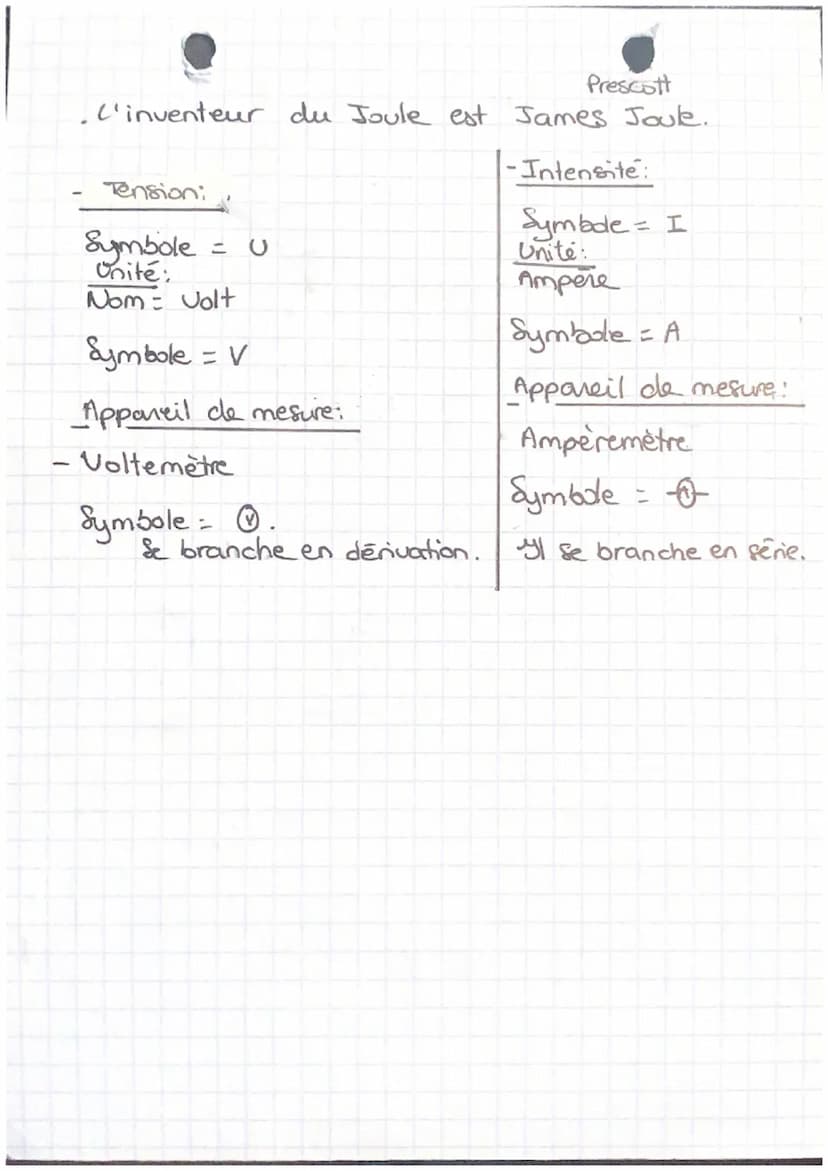 Prescott
. L'inventeur du Joule est James Joule.
- Tension:
Symbole = U
Unité:
Nom = Volt
Symbole = V
Appareil de mesure:
- Voltemètre
Symbole = V.
Se branche en dérivation.
- Intensité:
Symbole = I
Unité:
Ampère
Symbole = A
Appareil de mesure:
Ampèremètre
Symbole = A
Il se branche en série.